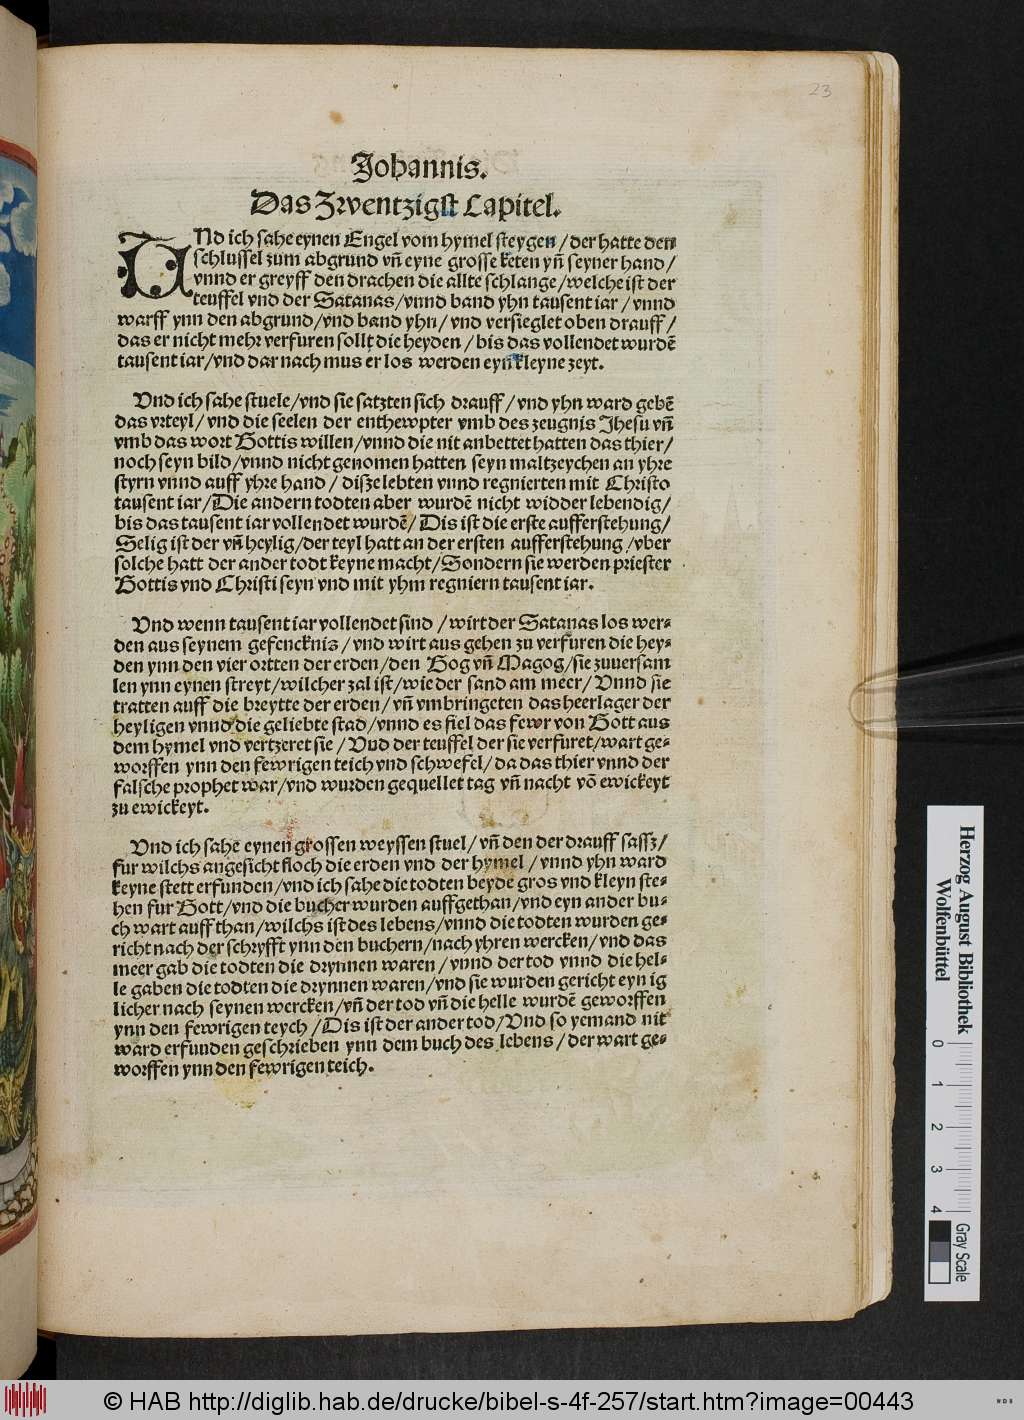 23
Johannis.
Das Zwentzigst Capitel.
UNd ich sahe eynen Engel vom hymel steygen / der hatte den
schlussel zum abgrund vñ eyne grosse keten yñ seyner hand /
vnnd er greyff den drachen die allte schlange / welche ist der
teuffel vnd der Satanas / vnnd band yhn tausent iar / vnnd
warff ynn den abgrund / vnd band yhn / vnd versieglet oben drauff /
das er nicht mehr verfuren sollt die heyden / bis das vollendet wurdē
tausent iar / vnd dar nach mus er los werden eyn kleyne zeyt.
Vnd ich sahe stuele / vnd sie satzten sich drauff / vnd yhn ward gebē
das vrteyl / vnd die seelen der enthewpter vmb des zeugnis Jhesu vñ
vmb das wort Gottis willen / vnnd die nit anbettet hatten das thier /
noch seyn bild / vnnd nicht genomen hatten seyn maltzeychen an yhre
styrn vnnd auff yhre hand / disze lebten vnnd regnierten mit Christo
tausent iar / Die andern todten aber wurdē nicht widder lebendig /
bis das tausent iar vollendet wurdē / Dis ist die erste aufferstehung /
Selig ist der vñ heylig / der teyl hatt an der ersten aufferstehung / vber
solche hatt der ander todt keyne macht / Sondern sie werden priester
Gottis vnd Christi seyn vnd mit yhm regniern tausent iar.
Vnd wenn tausent iar vollendet sind / wirt der Satanas los wer-
den aus seynem gefencknis / vnd wirt aus gehen zu verfuren die hey-
den ynn den vier ortten der erden / den Gog vñ Magog / sie zuuersam
len ynn eynen streyt / wilcher zal ist / wie der sand am meer / Vnnd sie
tratten auff die breytte der erden / vñ vmbringeten das heerlager der
heyligen vnnd die geliebte stad / vnnd es fiel das fewr von Gott aus
dem hymel vnd vertzeret sie / Vnd der teuffel der sie verfuret / wart ge-
worffen ynn den fewrigen teich vnd schwefel / da das thier vnnd der
falsche prophet war / vnd wurden gequellet tag vñ nacht võ ewickeyt
zu ewickeyt.
Vnd ich sahe eynen grossen weyssen stuel / vñ den der drauff sassz /
fur wilchs angesicht floch die erden vnd der hymel / vnnd yhn ward
keyne stett erfunden / vnd ich sahe die todten beyde gros vnd kleyn ste-
hen fur Gott / vnd die bucher wurden auffgethan / vnd eyn ander bu-
ch wart auff than / wilchs ist des lebens / vnnd die todten wurden ge-
richt nach der schryfft ynn den buchern / nach yhren wercken / vnd das
meer gab die todten die drynnen waren / vnnd der tod vnnd die hel-
le gaben die todten die drynnen waren / vnd sie wurden gericht eyn ig
licher nach seynen wercken / vñ der tod vñ die helle wurdē geworffen
ynn den fewrigen teych / Dis ist der ander tod / Vnd so yemand nit
ward erfunden geschrieben ynn dem buch des lebens / der wart ge-
worffen ynn den fewrigen teich.
Herzog August Bibliothek
Wolfenbüttel
0 1 2 3 4
Gray Scale
© HAB http://diglib.hab.de/drucke/bibel-s-4f-257/start.htm?image=00443